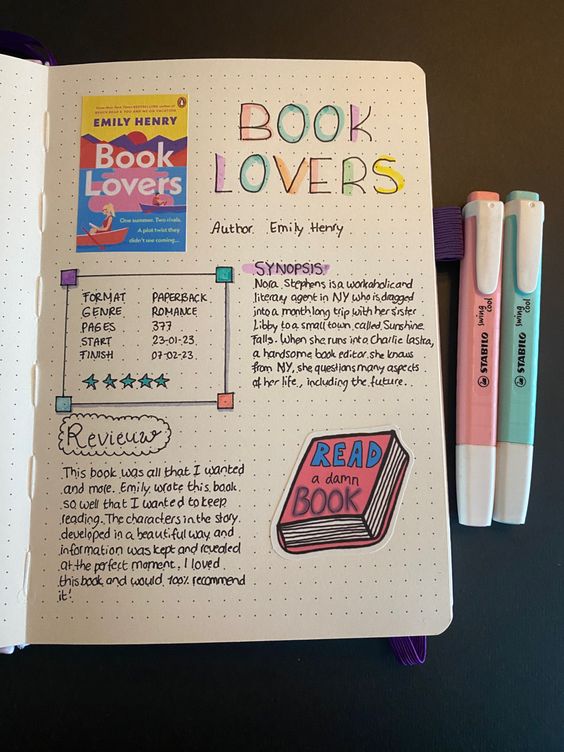 EMILY HENRY
Book
Lovers
One summer. Two rivals.
A plot twist they
didn't see coming...
BOOK
LOVERS
Author. Emily Henry
FORMAT PAPERBACK
GENRE ROMANCE
PAGES 377
START 23-01-23
FINISH 07-02-23
SYNOPSIS
Nora Stephens is a workaholic and
literary agent in NY who is dragged
into a month long trip with her sister
Libby to a small town called Sunshine
Falls. When she runs into Charlie Lastra,
a handsome book editor she knows
from NY, she questions many aspects
of her life, including the future..
Review
This book was all that I wanted
and more. Emily wrote this book
so well that I wanted to keep
reading. The characters in the story
developed in a beautiful way and
information was kept and revealed
at the perfect moment. I loved
this book and would 100% recommend
it!
READ
a damn
BOOK
STABILO swing cool
STABILO swing cool